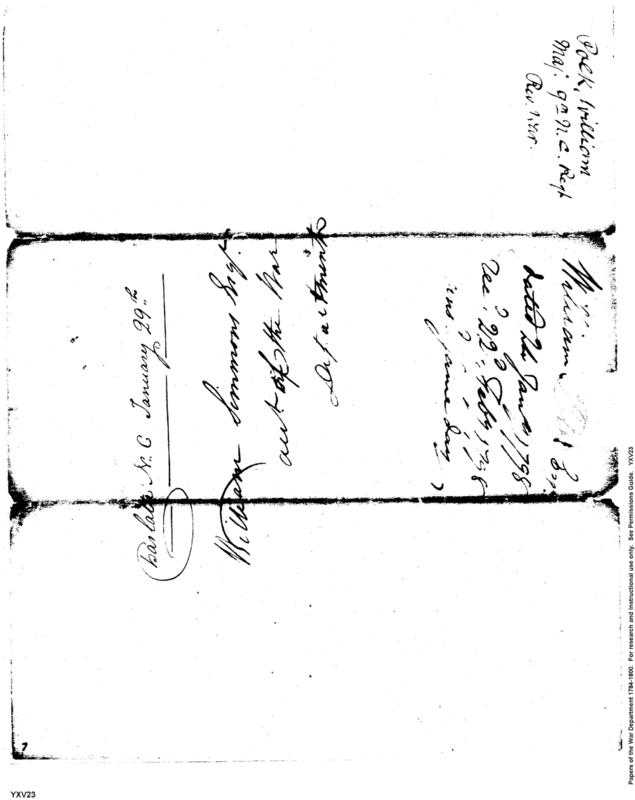 Polk, William
Maj. 9th N. C. Regt
Rev. War.
William
dated 24 Jany 1798
Rec.d 22.d Feby 1798
ans.d same day
Charlotte N. C January 29th
William Simmons Esqr.
acct of the War
Department
7
YXV23
Papers of the War Department 1784-1800. For research and instructional use only. See Permissions Guide. YXV23